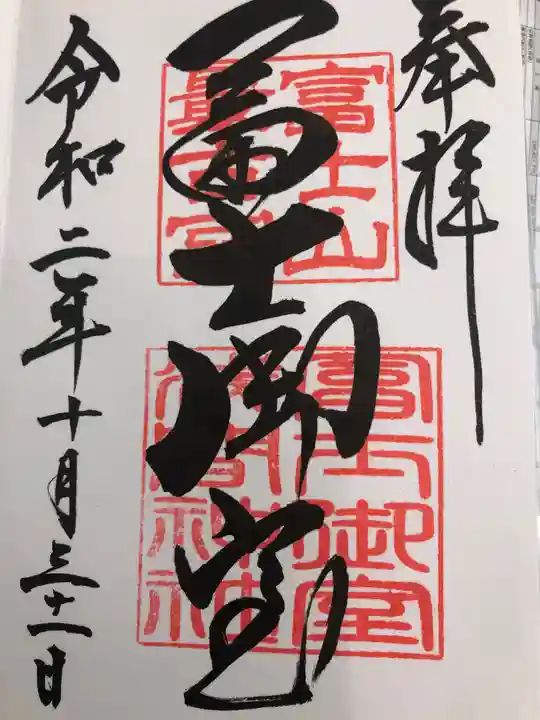 奉拝
富士山
最古宮
冨士御室
冨士御室
浅間神社
令和二年十月三十一日